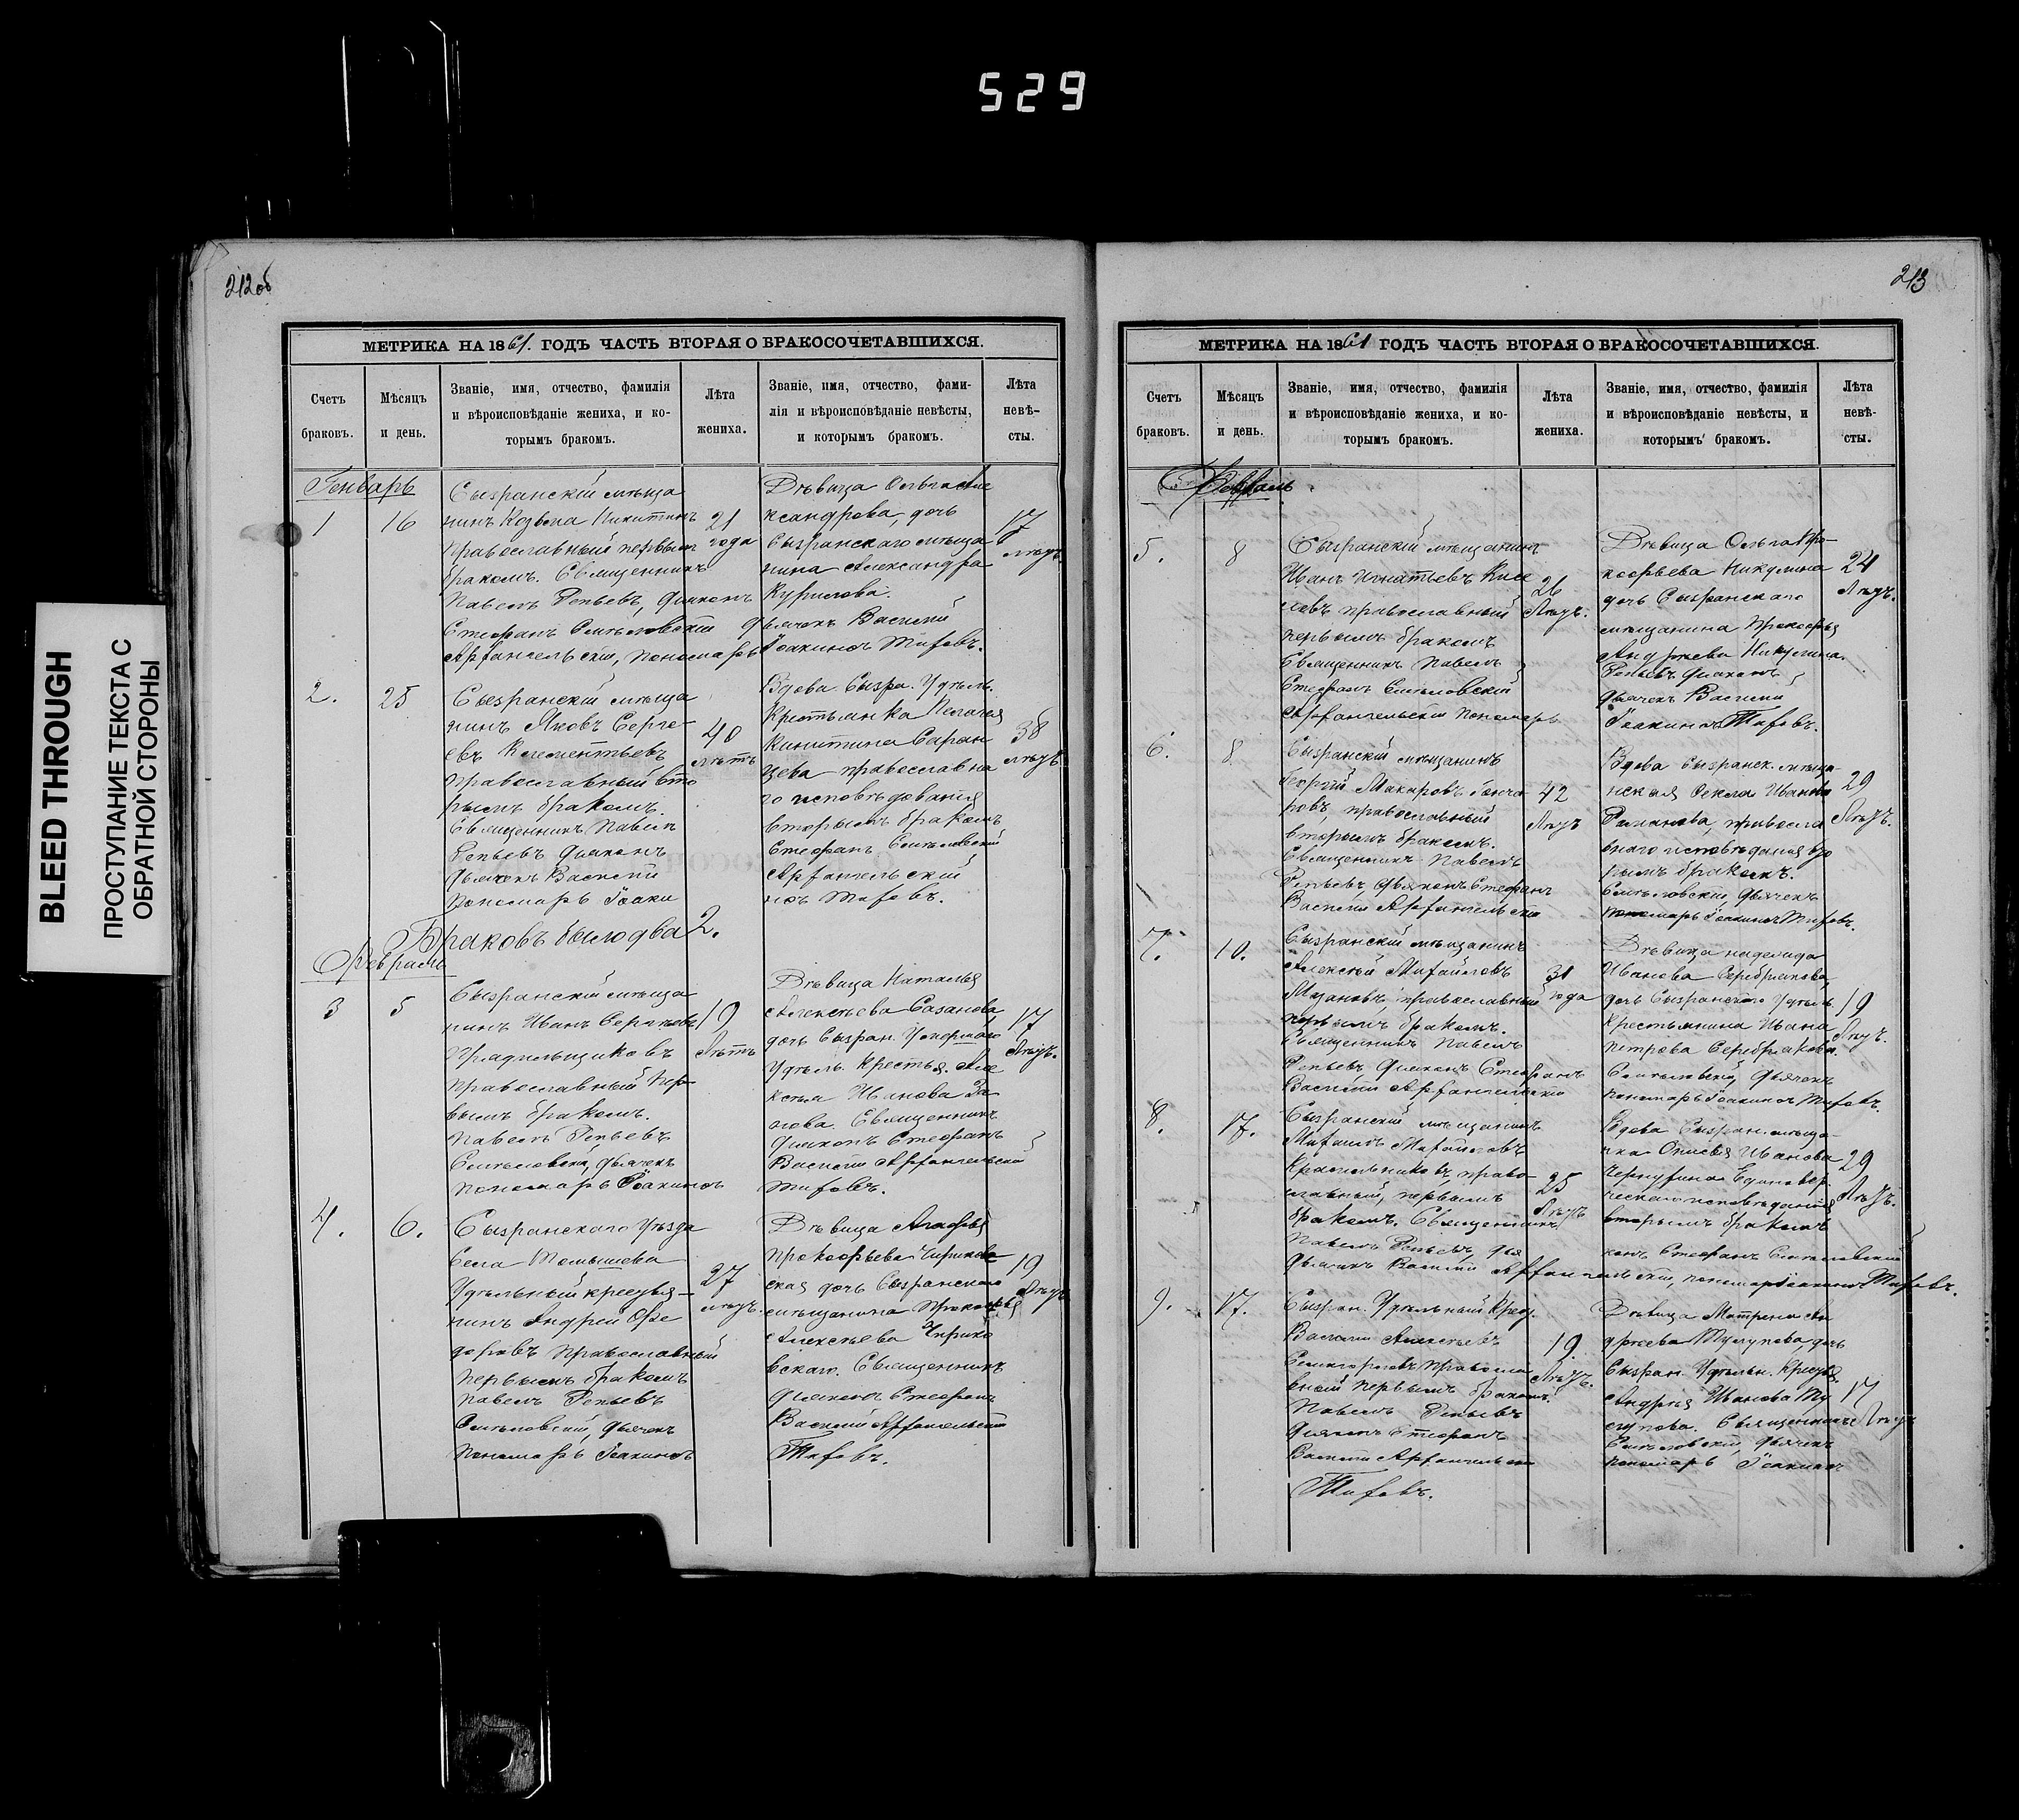 529
BLEED THROUGH
ПРОСТУПАНИЕ ТЕКСТА С
ОБРАТНОЙ СТОРОНЫ
212об
МЕТРИКА НА 1861. ГОДЪ ЧАСТЬ ВТОРАЯ О БРАКОСОЧЕТАВШИХСЯ.
Счетъ браковъ.
Мѣсяцъ и день.
Званіе, имя, отчество, фамилія
и вѣроисповѣданіе жениха, и ко-
торымъ бракомъ.
Лѣта жениха.
Званіе, имя, отчество, фами-
лія и вѣроисповѣданіе невѣсты,
и которымъ бракомъ.
Лѣта невѣ-
сты.
Генварь
1
16
Сызранскій мѣща
нинъ Козьма Никитинъ
православный первымъ
бракомъ. Священникъ
Павелъ Репьевъ, Діаконъ
Стефанъ
Архангельскій, пономарь
21
года
Дѣвица Ольга Але
ксандрова, дочь
Сызранскаго мѣща
нина Александра
Курилова.
дьячекъ Василій
Іоакимъ Тифовъ.
17
лѣтъ.
2.
25
Сызранскій мѣща
нинъ Яковъ Серге-
евъ Клементьевъ
православный вто
рымъ бракомъ.
Священникъ Павелъ
Репьевъ Діаконъ
Дьячекъ Василій
Пономарь Іоаки
40
лѣтъ
Вдова Сызра. Удѣль.
крестьянка Пелагея
Никитина Саран
цева православна
го исповѣдованія
вторымъ бракомъ
Стефанъ
Архангельскій
мъ Тифовъ.
38
лѣтъ
Браковъ было два 2.
Февраль
3
5
Сызранскій мѣща
нинъ Иванъ Сергѣевъ
Прядильщиковъ
православный пер
вымъ бракомъ.
Павелъ Репьевъ
дьячекъ
пономарь Іоакимъ
19
лѣтъ
Дѣвица Наталья
Алексѣева Сазанова
дочь Сызран.
Удѣль. крестья. Але
ксѣя Иванова
Священникъ
Діаконъ Стефанъ
Василій Архангельскій
Тифовъ.
17
лѣтъ.
4.
6.
Сызранскаго уѣзда
Села
Удѣльный кресть-
нинъ Андрей Фе
доровъ православный
первымъ бракомъ
Павелъ Репьевъ
дьячекъ
Пономарь Іоакимъ
27
лѣтъ.
Дѣвица Агафья
Прокофьева Чирков
ская дочь Сызранскаго
мѣщанина Прокофья
Алексѣева Чирко
вскаго. Священникъ
Діаконъ Стефанъ
Василій Архангельскій
Тифовъ.
19
лѣтъ
213
МЕТРИКА НА 1861 ГОДЪ ЧАСТЬ ВТОРАЯ О БРАКОСОЧЕТАВШИХСЯ.
Счетъ браковъ.
Мѣсяцъ и день.
Званіе, имя, отчество, фамилія
и вѣроисповѣданіе жениха, и ко-
торымъ бракомъ.
Лѣта жениха.
Званіе, имя, отчество, фамилія
и вѣроисповѣданіе невѣсты, и
которымъ бракомъ.
Лѣта невѣ-
сты.
Февраль.
5.
8
Сызранскій мѣщанинъ
Иванъ Игнатьевъ Кисе
левъ православный
первымъ бракомъ
Священникъ Павелъ
Стефанъ
Архангельскій Пономарь
26
лѣтъ.
Дѣвица Ольга Про-
кофьева Никулина
дочь Сызранскаго
мѣщанина Прокофья
Андреева Никулина.
Репьевъ Діаконъ
Дьячекъ Василій
Іоакимъ Тифовъ.
24
лѣтъ.
6.
8
Сызранскій мѣщанинъ
Георгій Макаровъ Гонча
ровъ, православный
вторымъ бракомъ.
Священникъ Павелъ
Репьевъ, Діаконъ Стефанъ
Василій Архангельскій
42
лѣтъ
Вдова Сызранск. мѣща-
нская Фекла Иванова
Романова, правосла
внаго исповѣданія вто
рымъ бракомъ.
дьячекъ
пономарь Іоакимъ Тифовъ.
29
лѣтъ.
7.
10.
Сызранскій мѣщанинъ
Алексѣй Михайловъ
Мазановъ, православный
первымъ бракомъ.
Священникъ Павелъ
Репьевъ, Діаконъ Стефанъ
Василій Архангельскій
31
года
Дѣвица Надежда
Иванова Серебрякова,
дочь Сызранскаго Удѣль.
крестьянина Ивана
Петрова Серебрякова.
дьячекъ
пономарь Іоакимъ Тифовъ.
19
лѣтъ.
8.
17.
Сызранскій мѣщанинъ
Михаилъ Михайловъ
Красильниковъ, право-
славный, первымъ
бракомъ. Священникъ
Павелъ Репьевъ, Діа
Дьячекъ Василій Архангельскій, пономарь Іоакимъ Тифовъ.
25
лѣтъ
Вдова Сызран. мѣща-
нка Анисья Иванова
Чернухина Единовѣр
ческаго исповѣданія
вторымъ бракомъ
конъ Стефанъ
29
лѣтъ.
9.
17.
Сызран. Удѣльный Крес.
Василій Алексѣевъ
правосла
вный первымъ бракомъ.
Павелъ Репьевъ
Діаконъ Стефанъ
Василій Архангельскій
Тифовъ.
19.
лѣтъ.
Дѣвица Матрена Ан
дреева Тулупова, дочь
Сызран. Удѣльн. Крест.
Андрея Иванова Ту
лупова. Священникъ
дьячекъ
пономарь Іоакимъ
17
лѣтъ